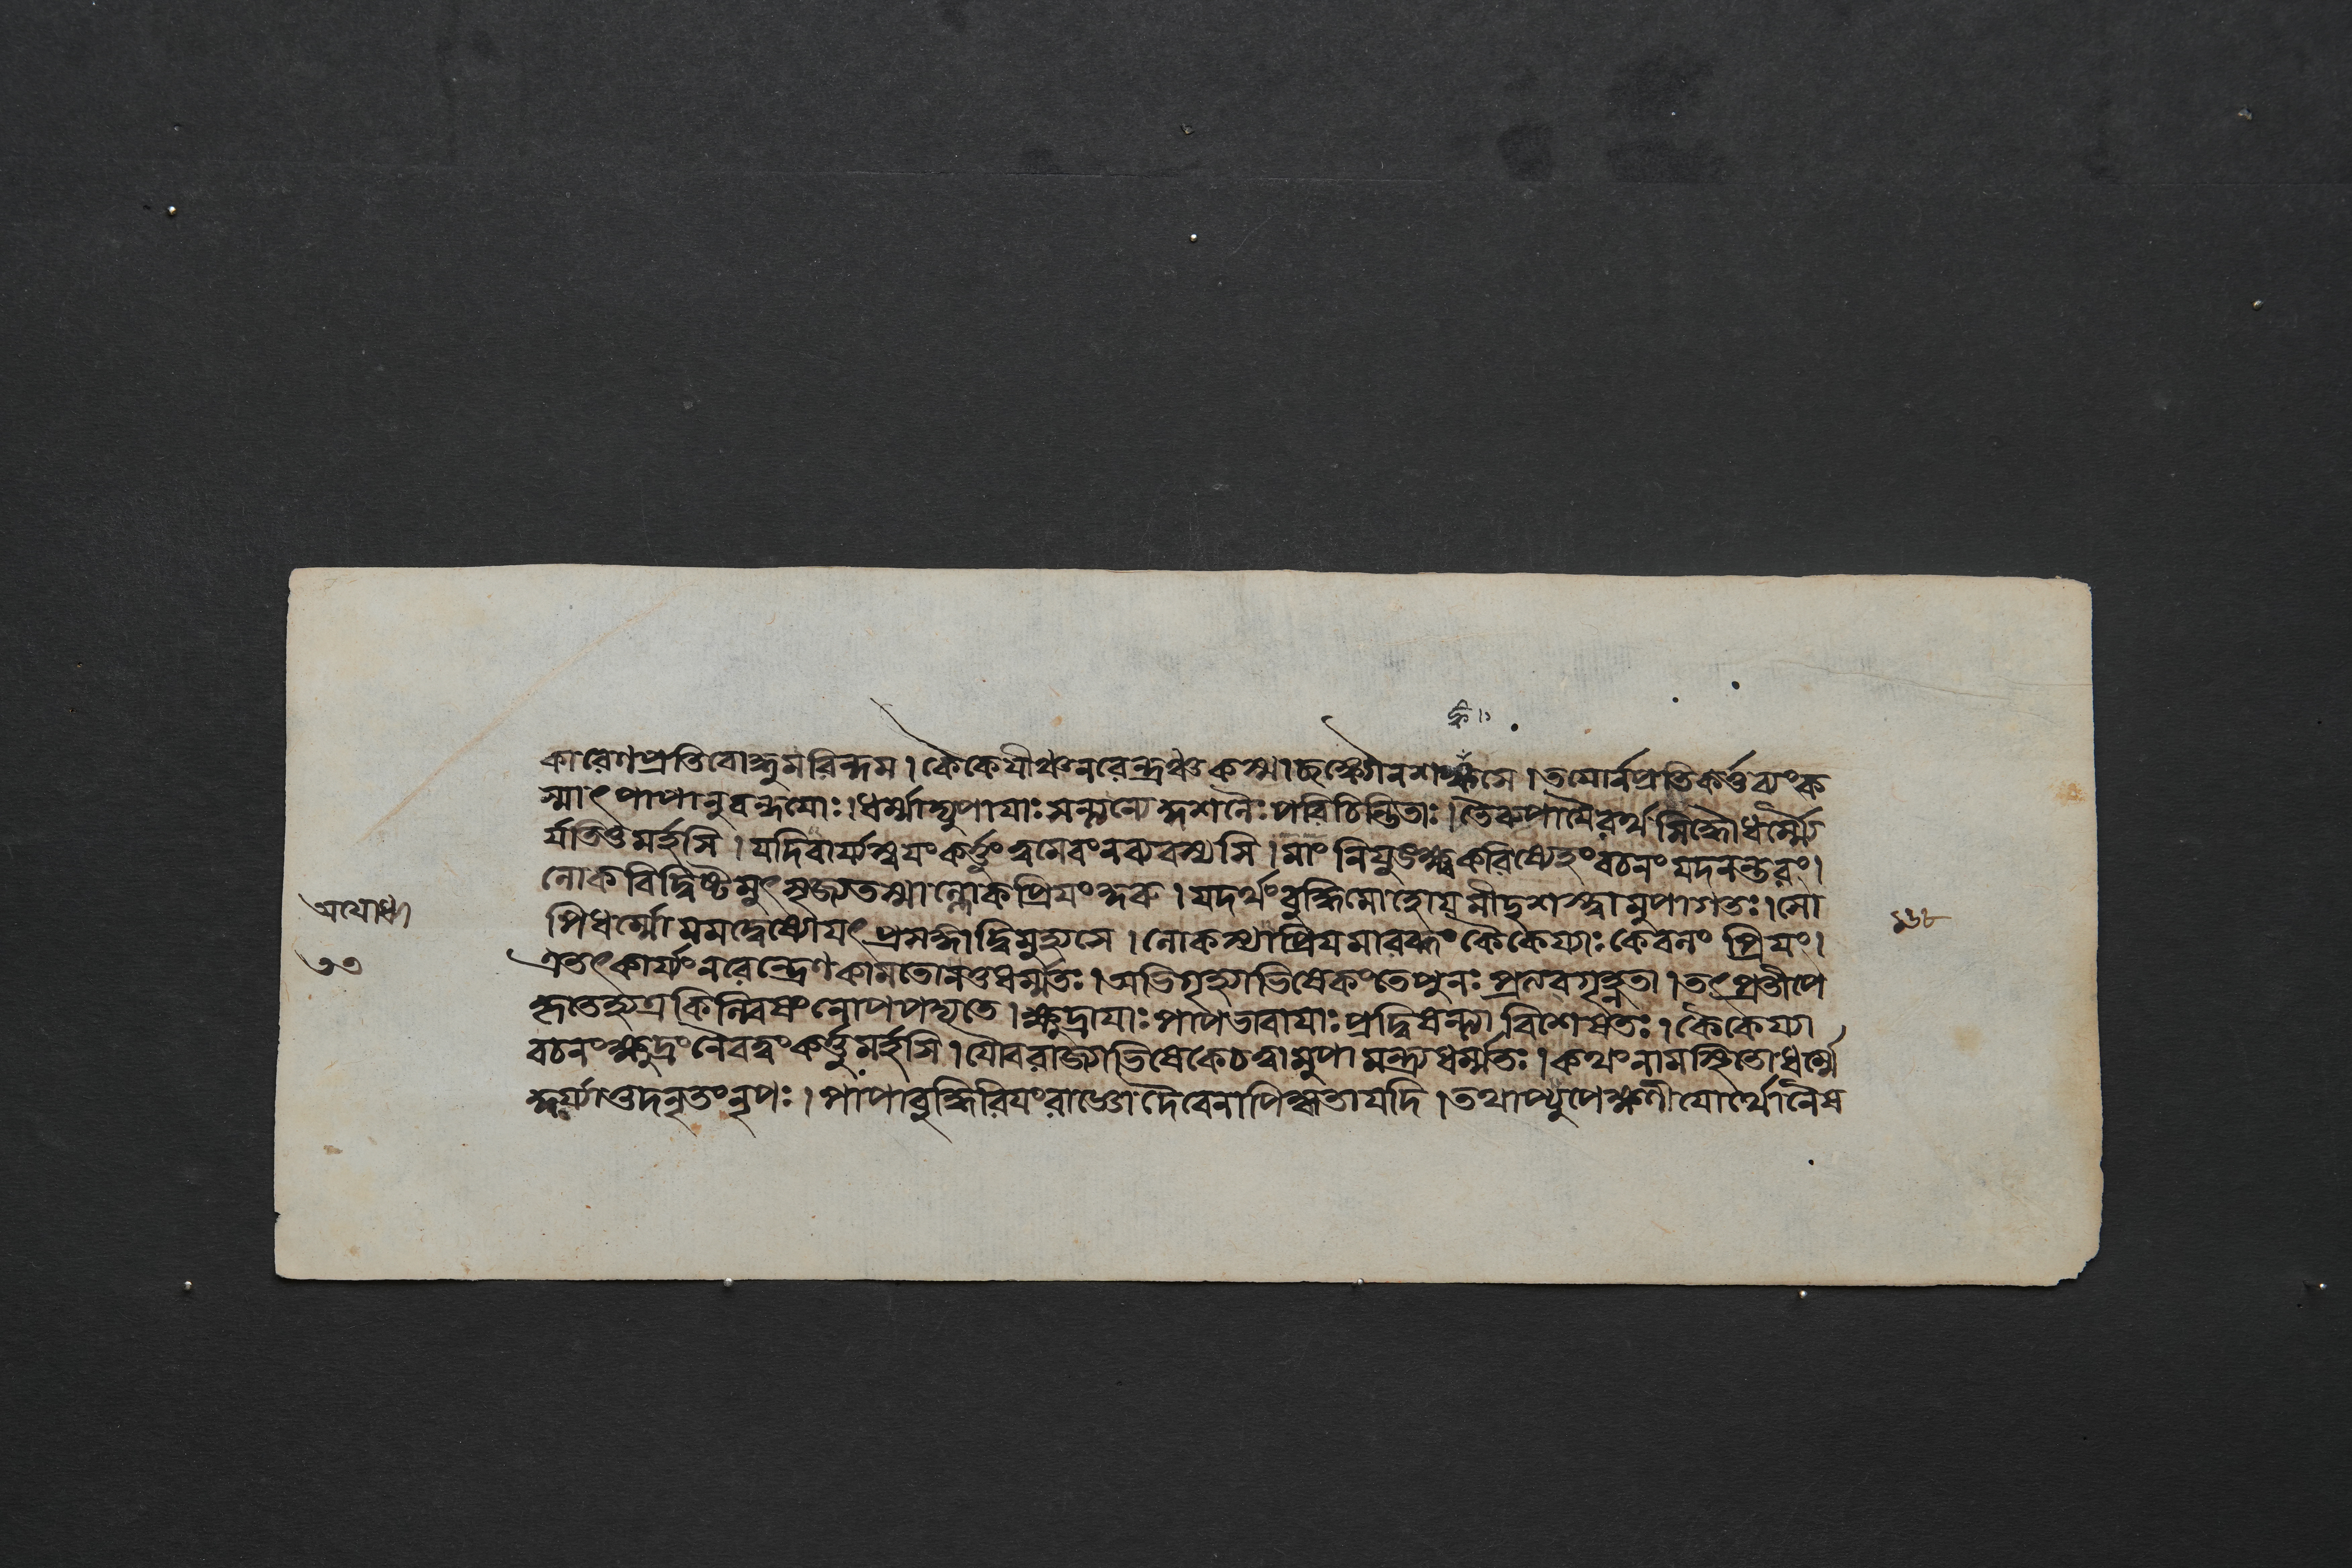 কারেণপ্রতিবোদ্ধুমরিন্দম। কৈকেযীঞ্চনরেন্দ্রঞ্চ শঙ্কসে। তযোর্নপ্রতিকর্ত্তব্যংক
স্মাৎপাপানুবন্ধযোঃ। ধর্ম্মাভ্যুপাযাঃসন্ত্যন্যে পরিচিন্তিতাঃ। তৈরুপাযৈরর্থসিদ্ধৌধর্ম্ম্যে
র্যতিতুমর্হসি। যদিবার্য্যস্বযংকর্ত্তুংত্বমেবংনব্যবস্যসি। মাংনিযুঙ্ক্ষ্বকরিষ্যেহংবচনংযদনন্তরং।
লোকবিদ্বিষ্টমুৎসৃজ্যতস্মাল্লোকপ্রিযংকুরু। যদর্থংবুদ্ধিমোহোযমীদৃশস্ত্বামুপাগতঃ। সো
অযোধ্যা
পিধর্ম্মোমমদ্বেষ্যোযৎপ্রসঙ্গাদ্বিমুহ্যসে। লোকস্যাপ্রিযমারব্ধংকৈকেয্যাঃকেবলংপ্রিযং।
১৬৮
এতৎকার্য্যংনরেন্দ্রেণকামতোনতুধর্ম্মতঃ। অভিগৃহ্যাভিষেকংতেপুনঃপ্রত্যবগৃহ্ণতা। তৎপ্রতীপে
কৃতেহ্যত্রকিল্বিষংনোপপদ্যতে। ক্ষুদ্রাযাঃপাপভাবাযাঃপ্রদ্বিষন্ত্যাবিশেষতঃ। কৈকেয্যা
বচনংক্ষুদ্রংনৈবত্বংকর্ত্তুমর্হসি। যৌবরাজ্যাভিষেকেচত্বামুপামন্ত্র্যধর্ম্মতঃ। কথংনামস্থিতোধর্ম্মে
কুর্য্যাত্তদনৃতংনৃপঃ। পাপাবুদ্ধিরিযংরাজ্ঞোদৈবেনাপিকৃতাযদি। তথাপ্যুপেক্ষণীযোর্থোনৈষ